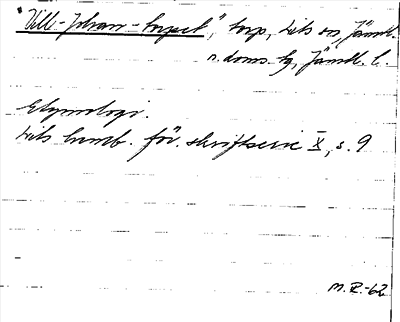 "Vill-Johan-torpet", torp, Lits sn, Jämtl.
n. doms. tg, Jämtl. l.
Etymologi.
Lits hemb. för. skriftserie X, s. 9
M.R.-62